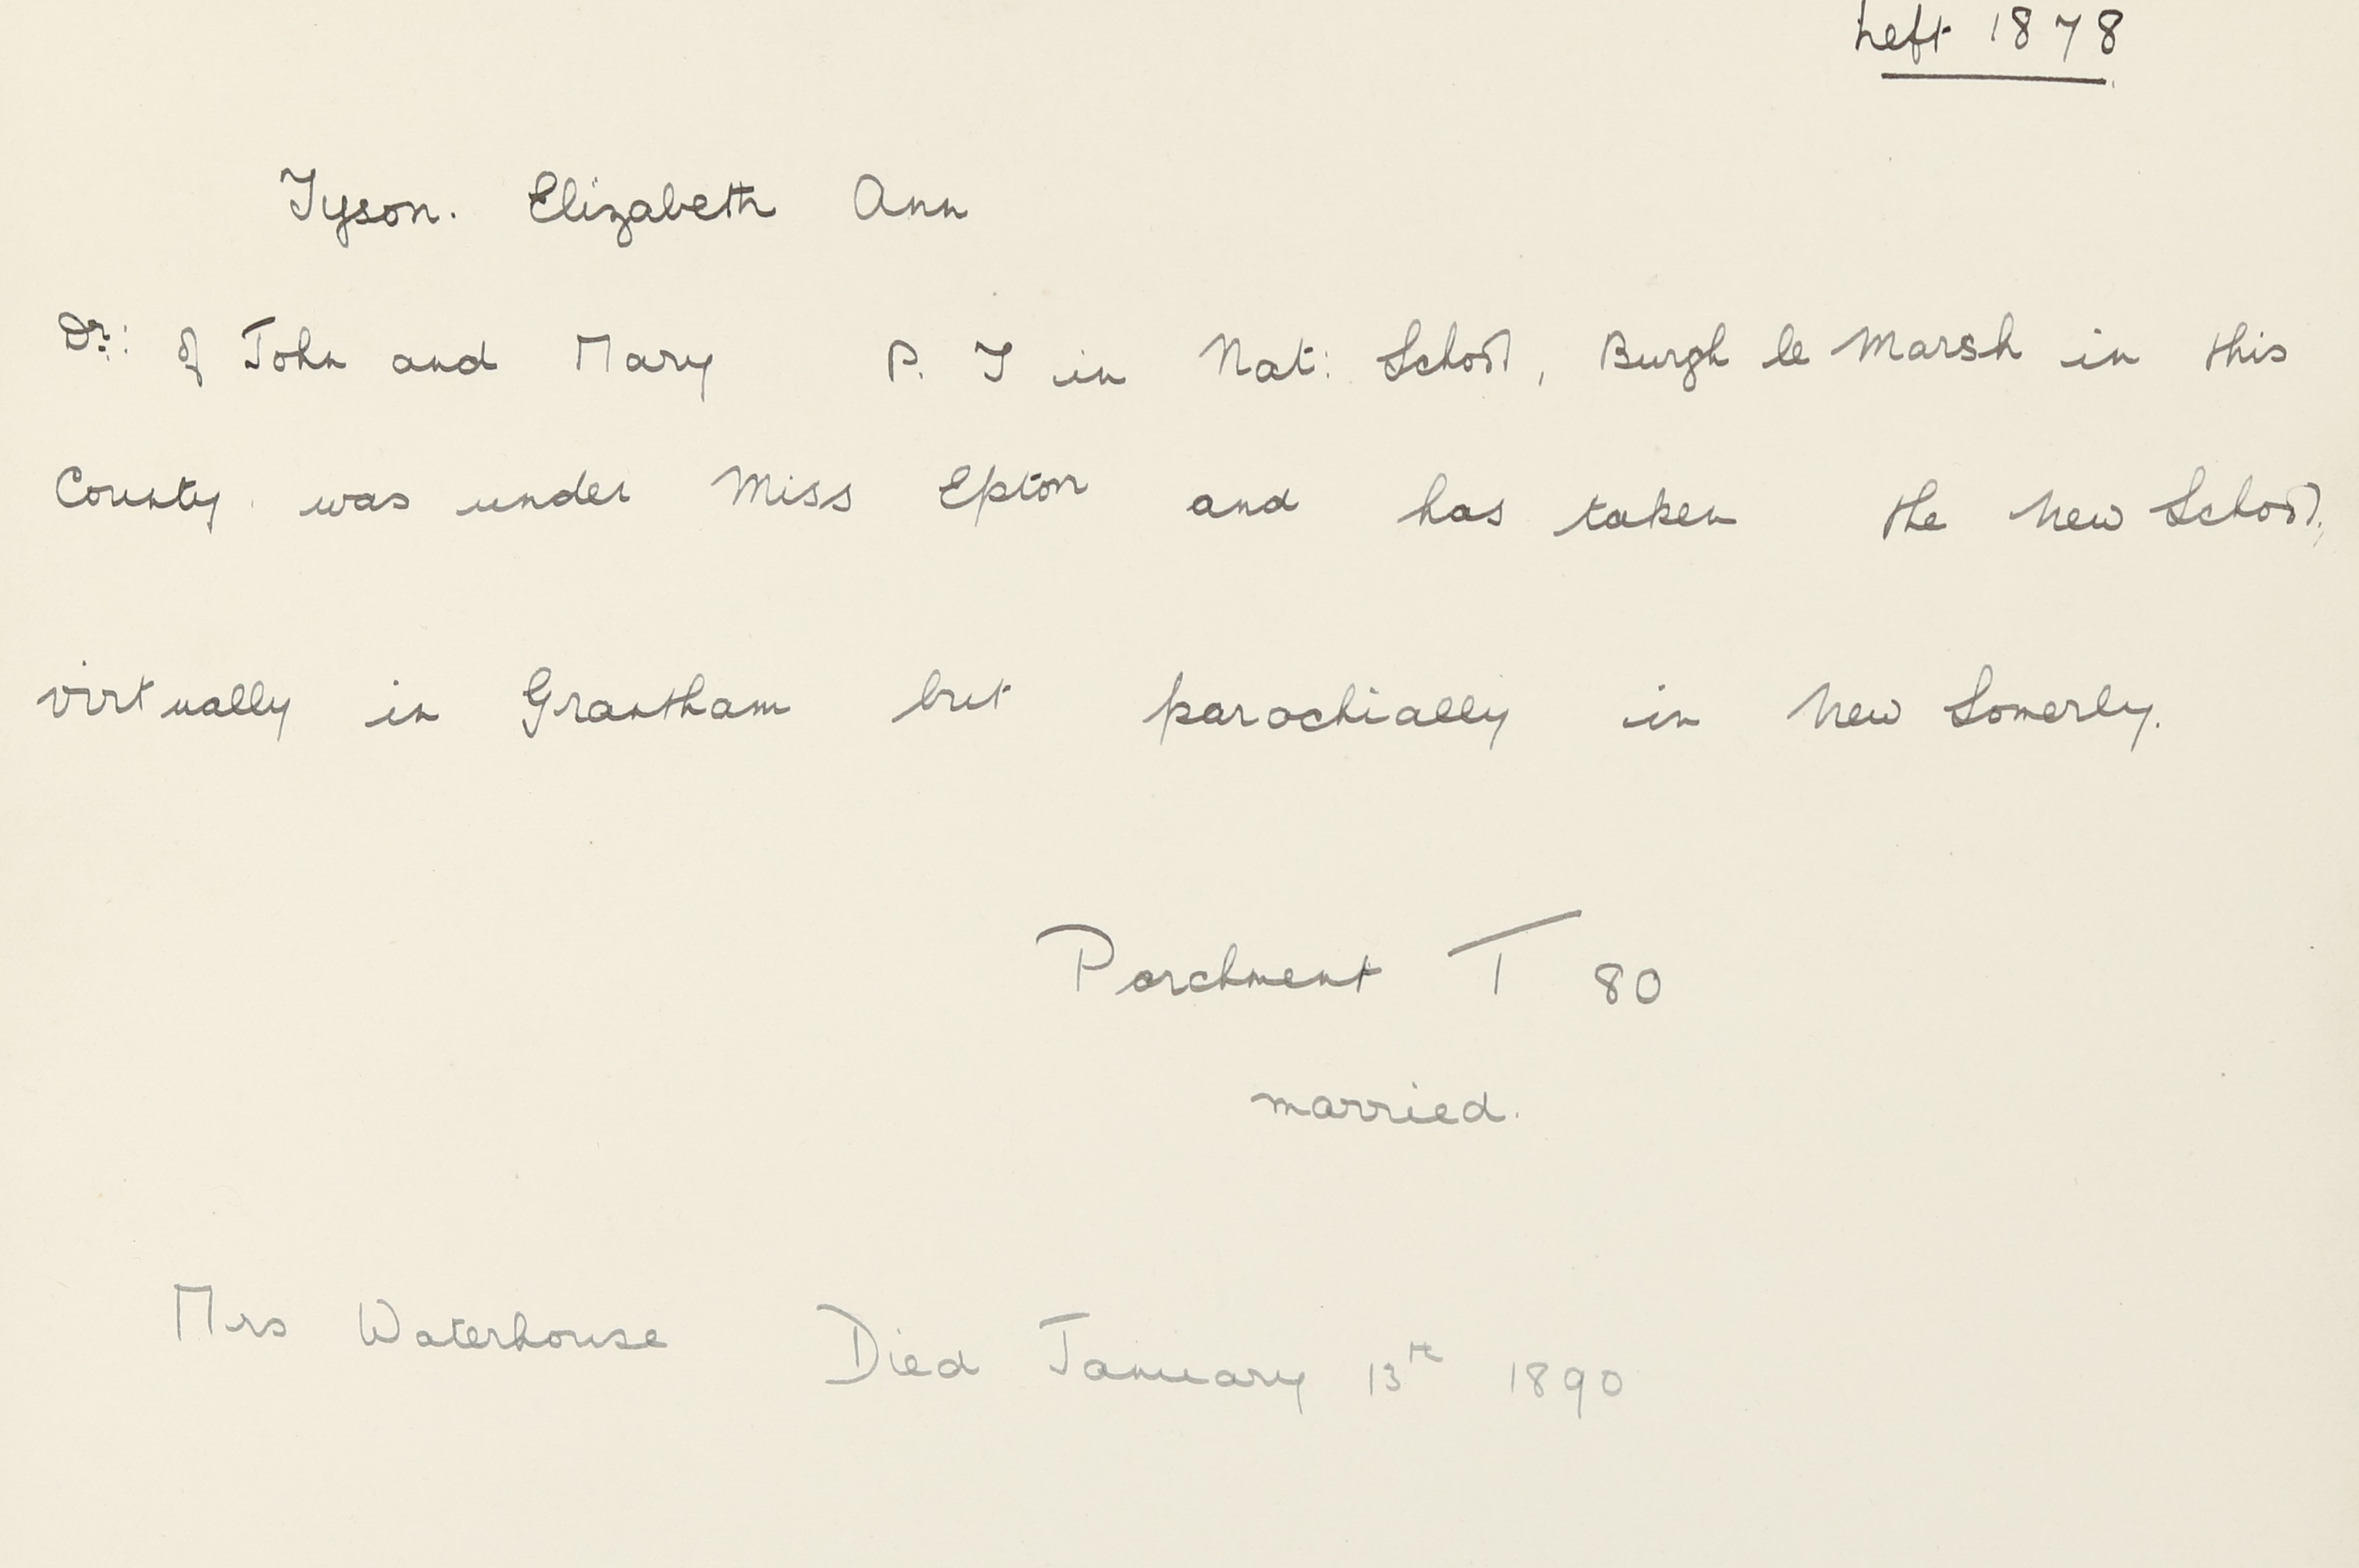 Left 1878
Tyson. Elizabeth Ann
Dr:: of John and Mary P. T in Nat: School, Burgh le Marsh in this
County. was under Miss Epton and has taken the New School,
virtually in Grantham but parochially in New Somerly.
Parchment T 80
married.
Mrs Waterhouse Died January 13th 1890